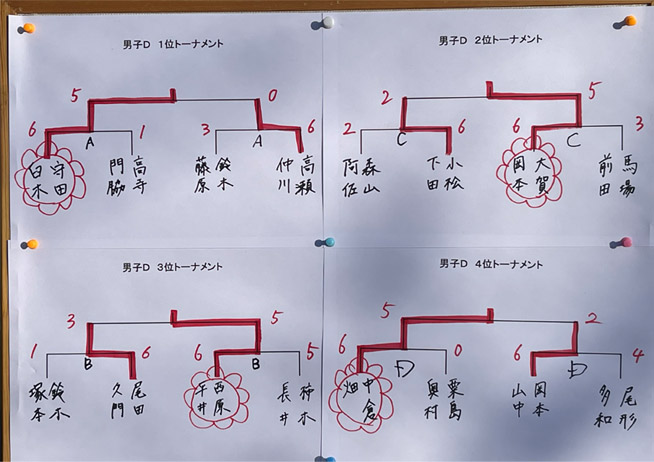 男子D 1位トーナメント
5 0
6 1 3 6
A A
守田 白木
高寺 門脇
鈴木 藤原
高瀬 仲川
男子D 2位トーナメント
2 5
2 6 6 3
C C
森山 阿佐
小松 下田
大賀 岡本
馬場 前田
男子D 3位トーナメント
3 5
1 6 6 5
B B
鈴木 塚本
尾田 久門
西原 平井
柿木 長井
男子D 4位トーナメント
5 2
6 0 6 4
D D
中倉 畑
粟島 奥村
岡本 山中
尾形 多和